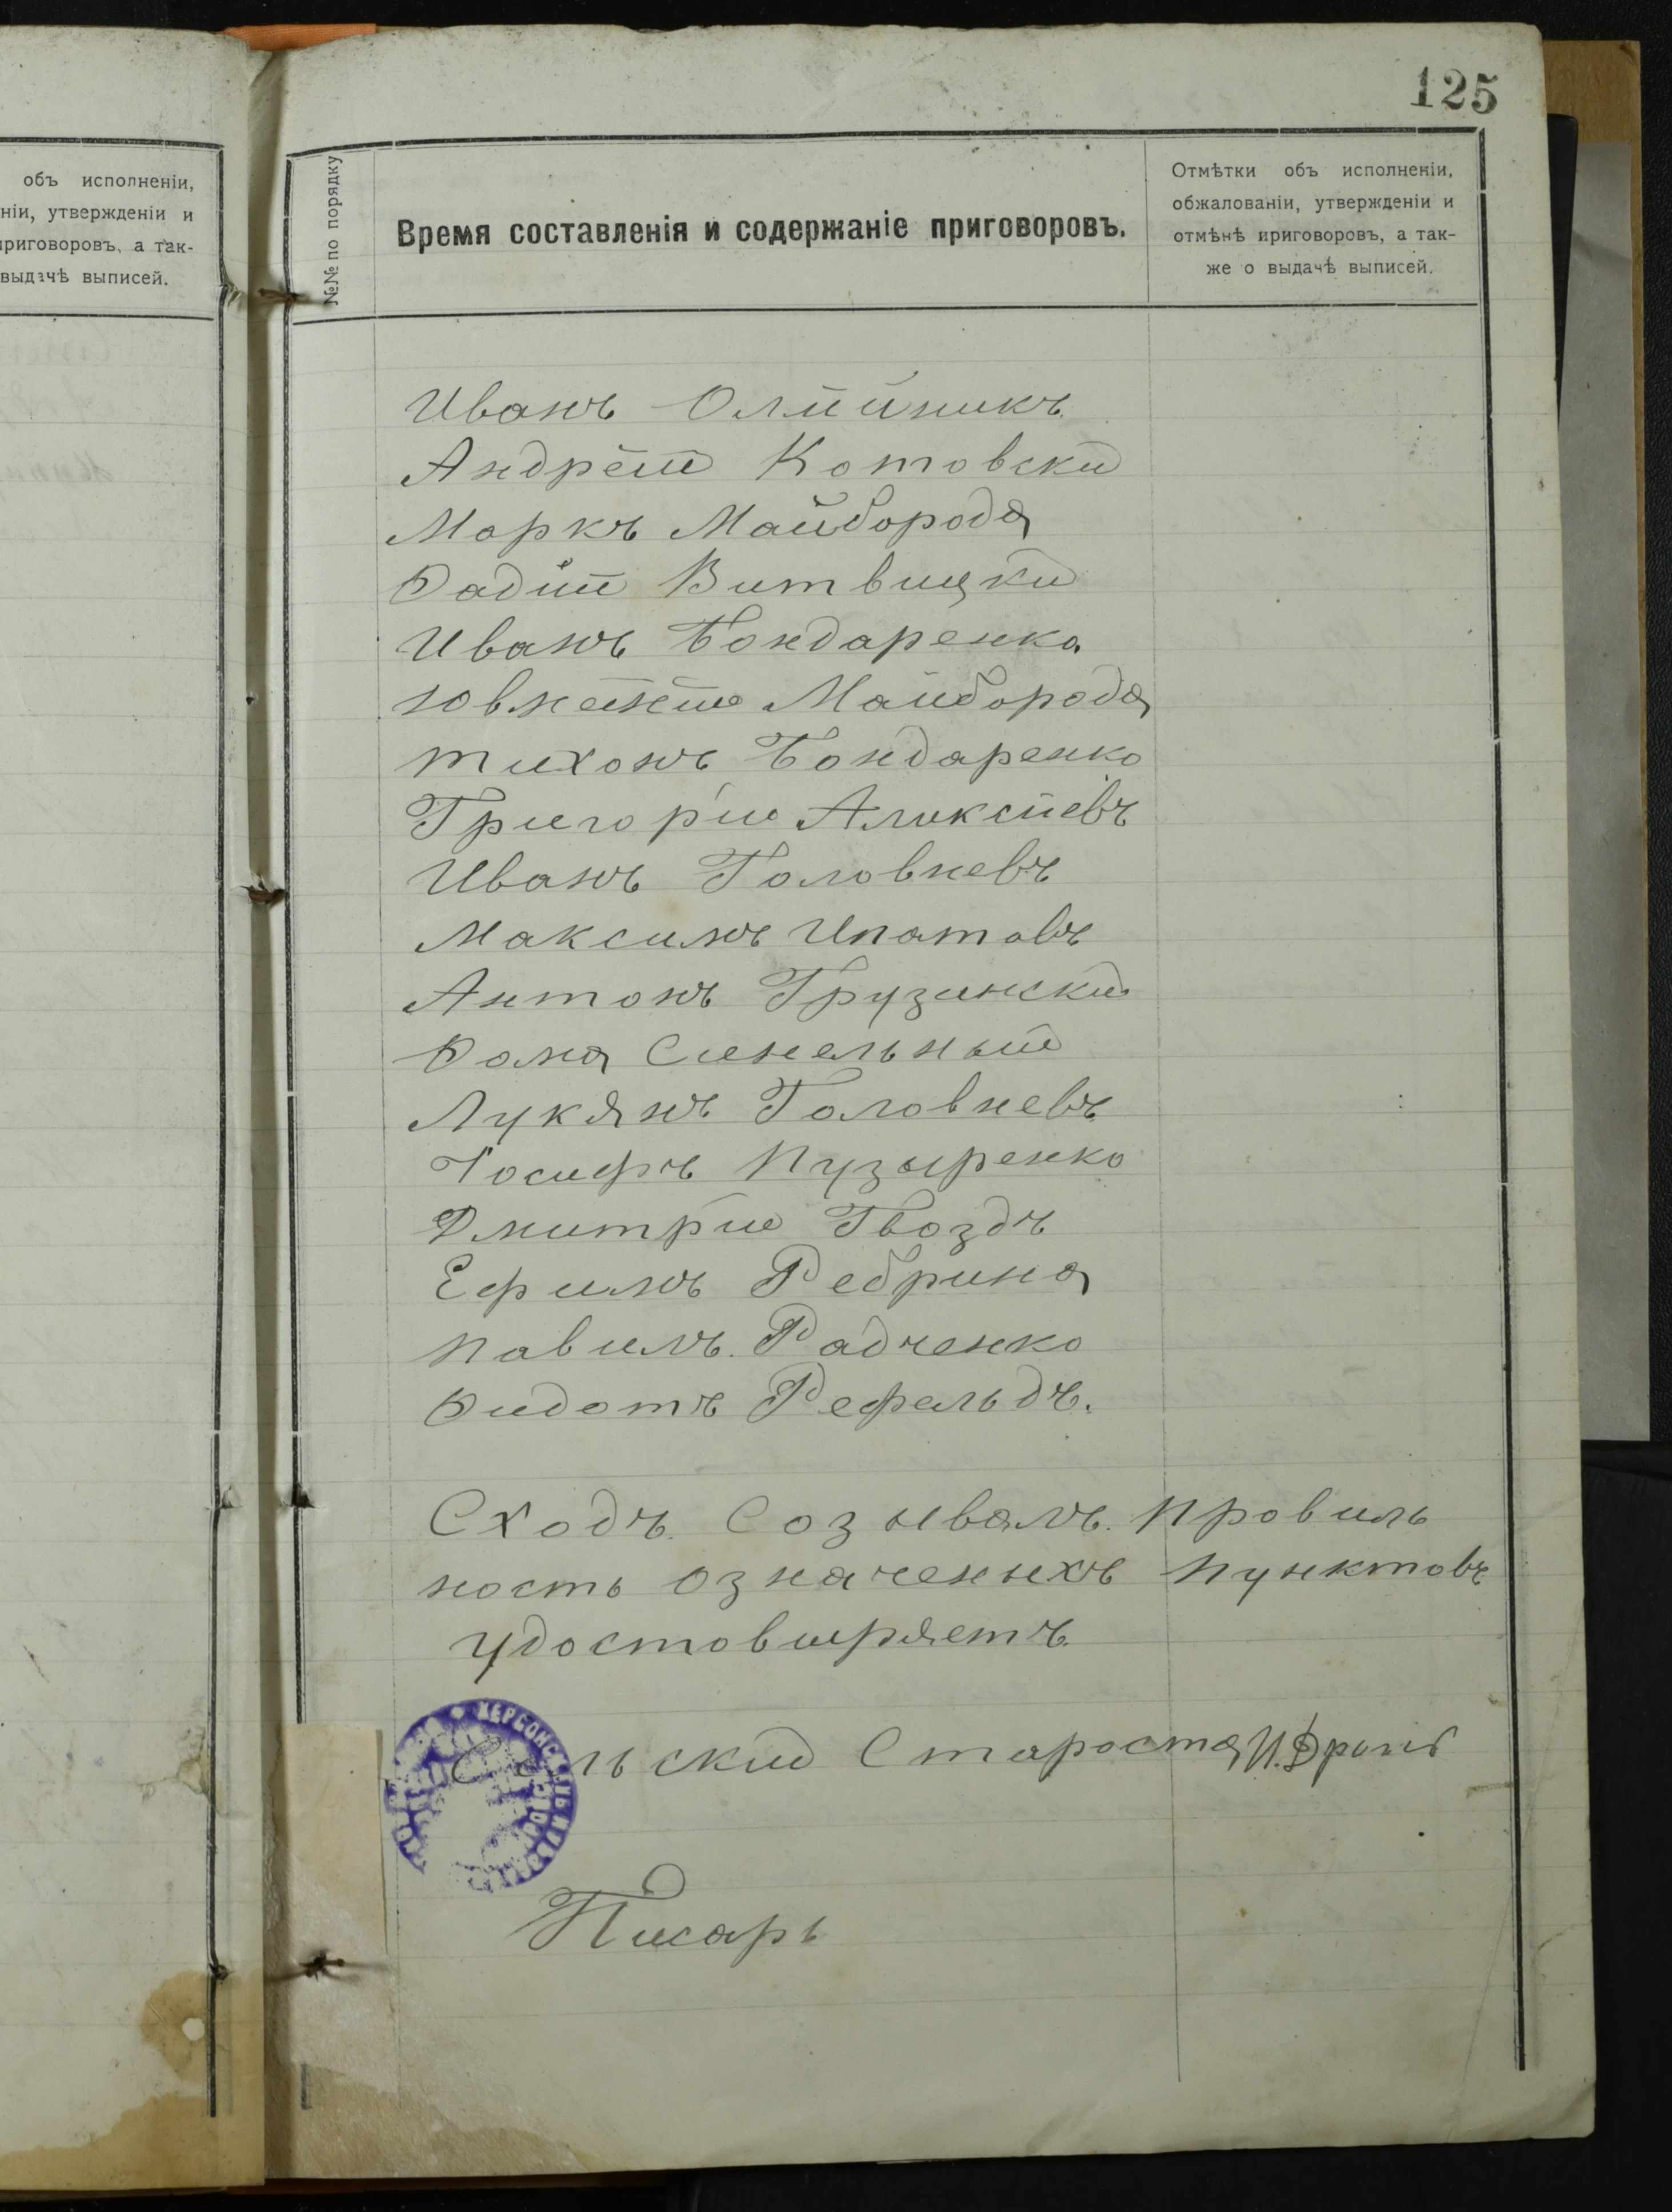 125
объ исполненіи,
ніи, утвержденіи и
приговоровъ, а так-
выдачѣ выписей.
№№ по порядку
Время составленія и содержаніе приговоровъ.
Отмѣтки объ исполненіи,
обжалованіи, утвержденіи и
отмѣнѣ приговоровъ, а так-
же о выдачѣ выписей.
Иванъ Олийникъ
Андрей Котовский
Маркъ Майборода
Фадий Витвицкий
Иванъ Бондаренко
Майборода
Тихонъ Бондаренко
Григорий Аликсиевъ
Иванъ Головневъ
Максимъ Ипатовъ
Антонъ Грузинский
Фома Синельный
Лукянъ Головневъ
Іосифъ Пузыренко
Дмитрий Гвоздъ
Ефимъ Ребрина
Павилъ Радченко
Фидотъ Рефельдъ.
Сходъ Созывалъ. Провиль
ность означеныхъ пунктовъ
удостовиряетъ
Сельский Староста И.
Писарь
ХЕРСОНС